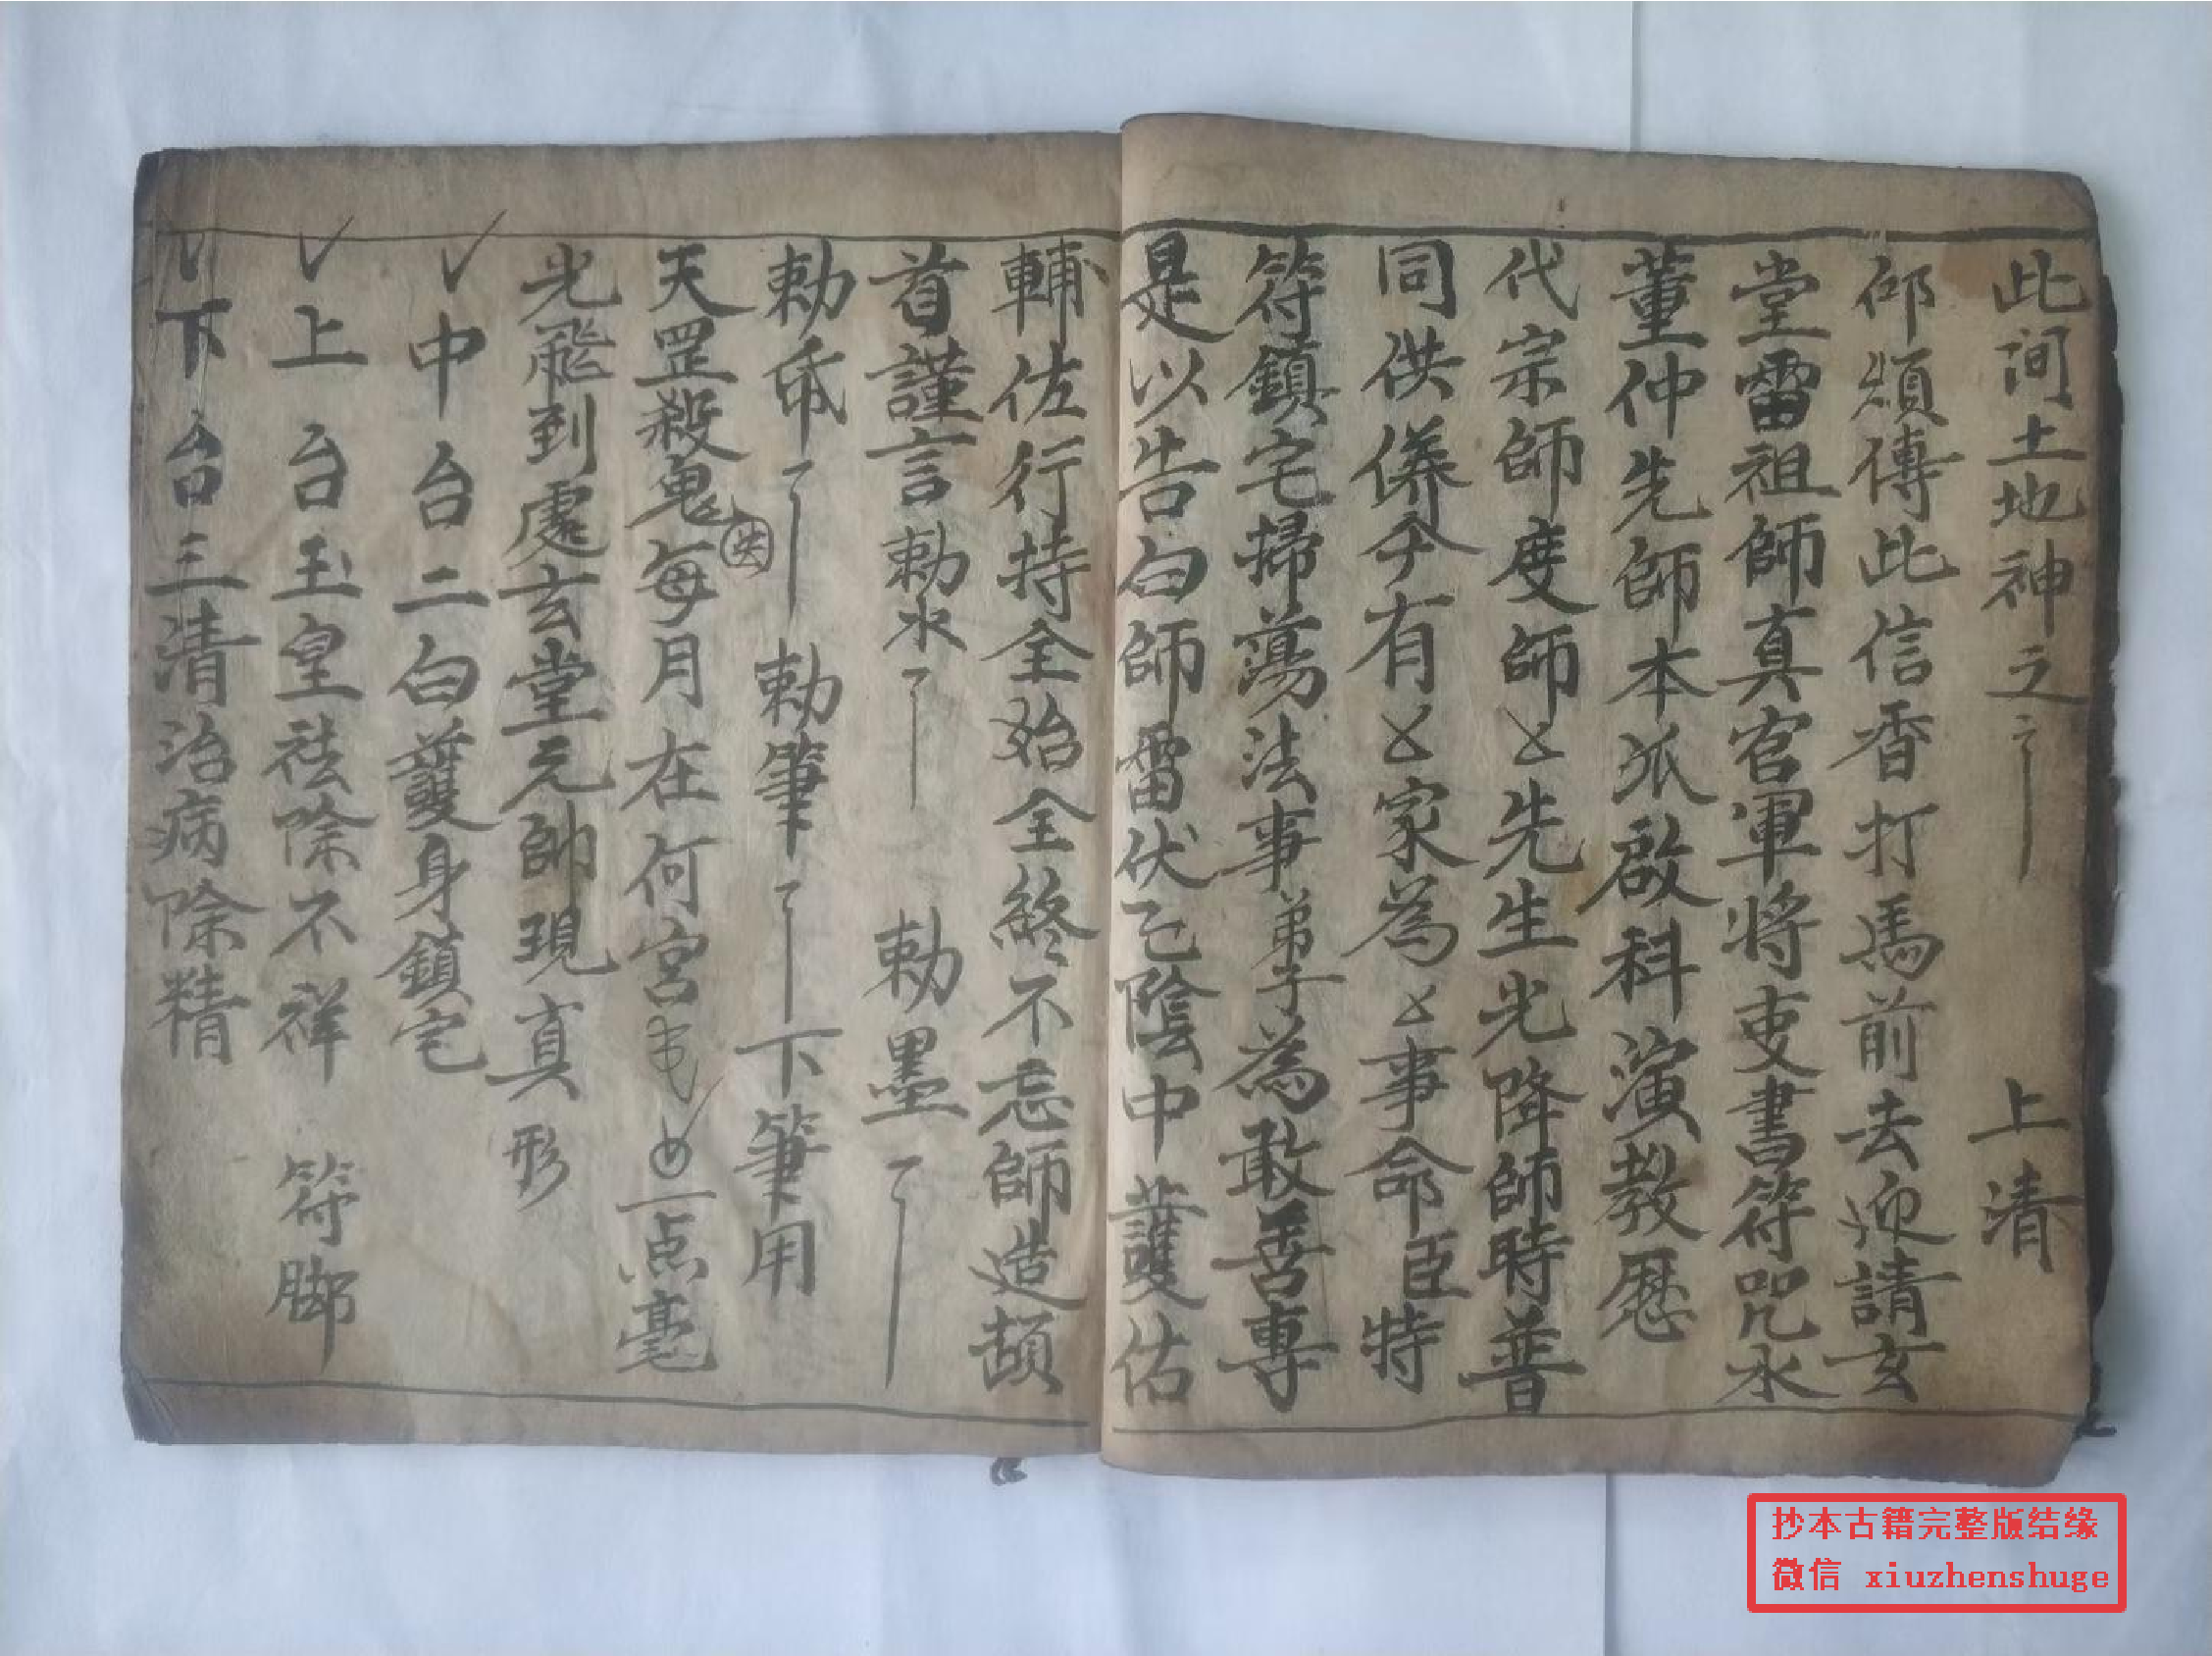 此间土地神之 上清
仰煩傳此信香打馬前去迎請玄
堂雷祖師真官軍将吏書符咒水
董仲先師本派啟科演教歷
代宗師度師先生光降師時普
同供養今有家為事命臣特
符鎮宅掃蕩法事弟子為敢善專
是以告白師雷伏乞陰中護佑
輔佐行持全始全終不忘師造頡
首謹言勅水 勅墨
勅帋 勅筆 下筆用
天罡殺鬼每月在何宮 一点毫
光飛到處玄堂元帥現真形
中台二白護身鎮宅
上台玉皇祛除不祥 符脚
下台三清治病除精
抄本古籍完整版结缘
微信 xiuzhenshuge